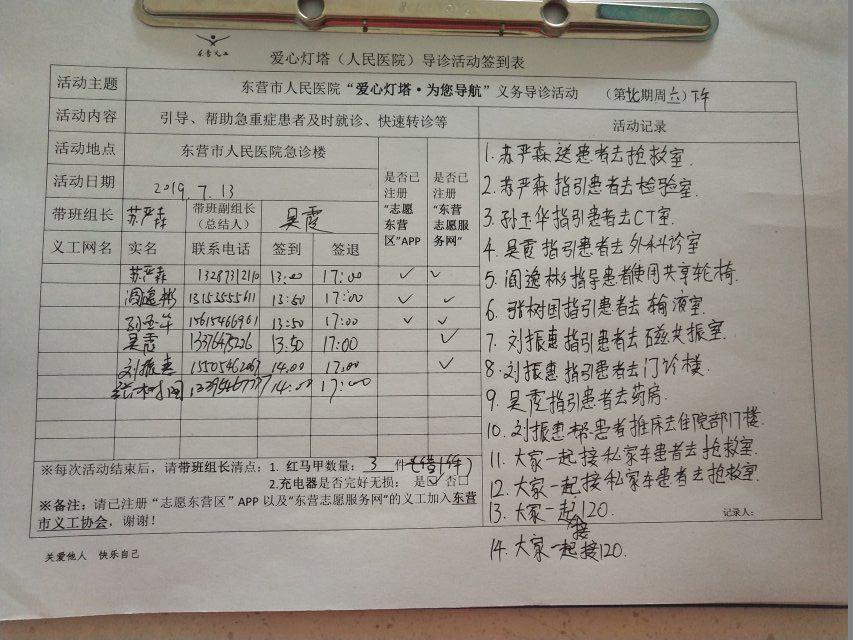 东营义工
爱心灯塔（人民医院）导诊活动签到表
活动主题 东营市人民医院“爱心灯塔·为您导航”义务导诊活动 （第 期周六）下午
活动内容 引导、帮助急重症患者及时就诊、快速转诊等 活动记录
活动地点 东营市人民医院急诊楼
活动日期 2019.7.13
是否已注册“志愿东营区”APP
是否已注册“东营志愿服务网”
带班组长 苏严森 带班副组长（总结人） 吴霞
义工网名 实名 联系电话 签到 签退
苏严森 1328731210 13:00 17:00 ✓ ✓
阎逸彬 13153555611 13:50 17:00 ✓ ✓
孙玉华 15615466961 13:50 17:00 ✓ ✓
吴霞 13:50 17:00 ✓
刘振惠 14:00 17:00 ✓
张树国 14:00 17:00
※每次活动结束后，请带班组长清点：1. 红马甲数量：3 件（借1件）
2.充电器是否完好无损： 是☑否□
※备注：请已注册“志愿东营区”APP 以及“东营志愿服务网”的义工加入东营
市义工协会，谢谢！
1. 苏严森送患者去抢救室.
2. 苏严森指引患者去检验室.
3. 孙玉华指引患者去CT室.
4. 吴霞指引患者去外科诊室
5. 阎逸彬指导患者使用共享轮椅.
6. 张树国指引患者去输液室.
7. 刘振惠指引患者去磁共振室.
8. 刘振惠指引患者去门诊楼.
9. 吴霞指引患者去药房.
10. 刘振惠帮患者推床去住院部17楼.
11. 大家一起接私家车患者去抢救室.
12. 大家一起接私家车患者去抢救室.
13. 大家一起接120.
记录人：
14. 大家一起接120.
关爱他人 快乐自己